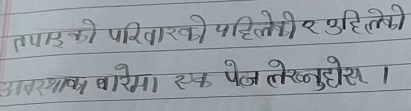 तपाइको परिवारको पहिलेको र अहिलेको
अवस्थाको बारेमा एक पेज लेख्नुहोस ।